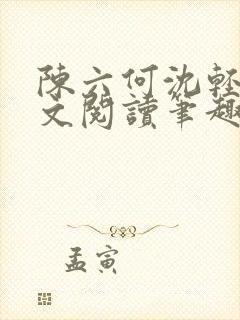 陳六何沈輕
文閱讀筆趣
孟寅